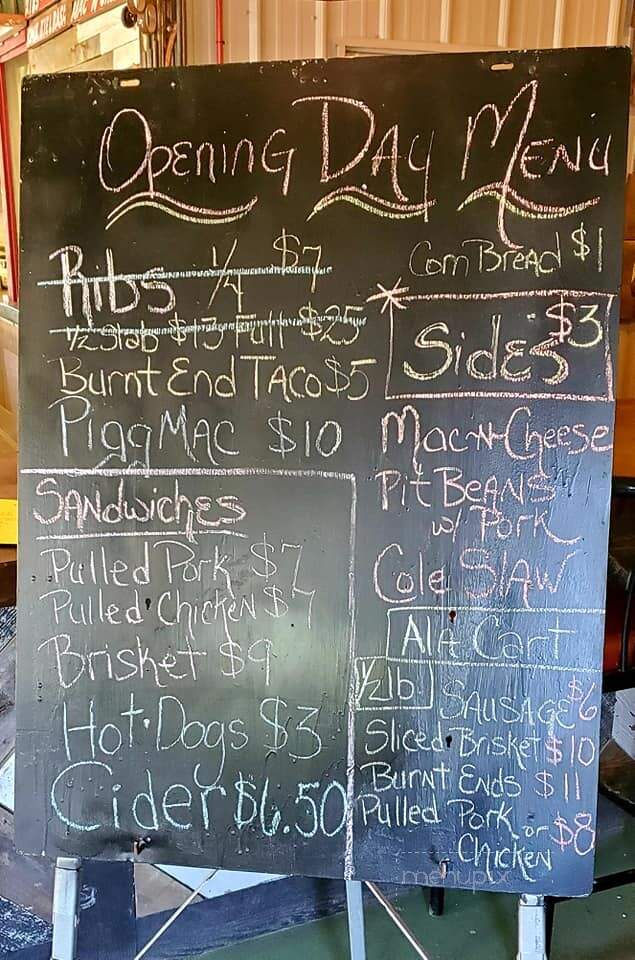 Opening Day Menu
Ribs 1/4 $7
1/2 Slab $13 Full $25
Burnt End Taco $5
Pigg Mac $10
Sandwiches
Pulled Pork $7
Pulled Chicken $7
Brisket $9
Hot Dogs $3
Cider $6.50
Corn Bread $1
* Sides $3
Mac-N-Cheese
Pit Beans
w/ Pork
Cole Slaw
Ala Cart
1/2 lb.
Sausage $6
Sliced Brisket $10
Burnt Ends $11
Pulled Pork or $8
Chicken
menupix